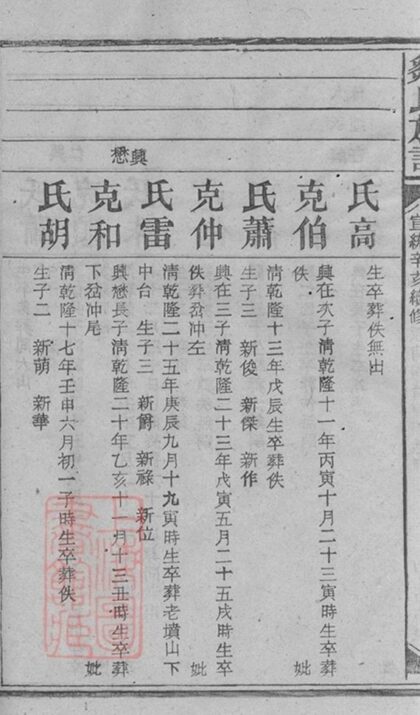 宣統辛亥續修
氏高
生卒葬佚無出
克伯
興在次子清乾隆十一年丙寅十月二十三寅時生卒葬佚 妣
氏蕭
清乾隆十三年戊辰生卒葬佚
生子三 新俊 新傑 新作
克仲
興在三子清乾隆二十三年戊寅五月二十五戌時生卒
佚葬岔冲左 妣
氏雷
清乾隆二十五年庚辰九月十九寅時生卒葬老墳山下
中台 生子三 新爵 新祿 新位
興懋
克和
興懋長子清乾隆二十年乙亥十一月十三丑時生卒葬
下岔冲尾 妣
氏胡
清乾隆十七年壬申六月初一子時生卒葬佚
生子二 新萌 新華